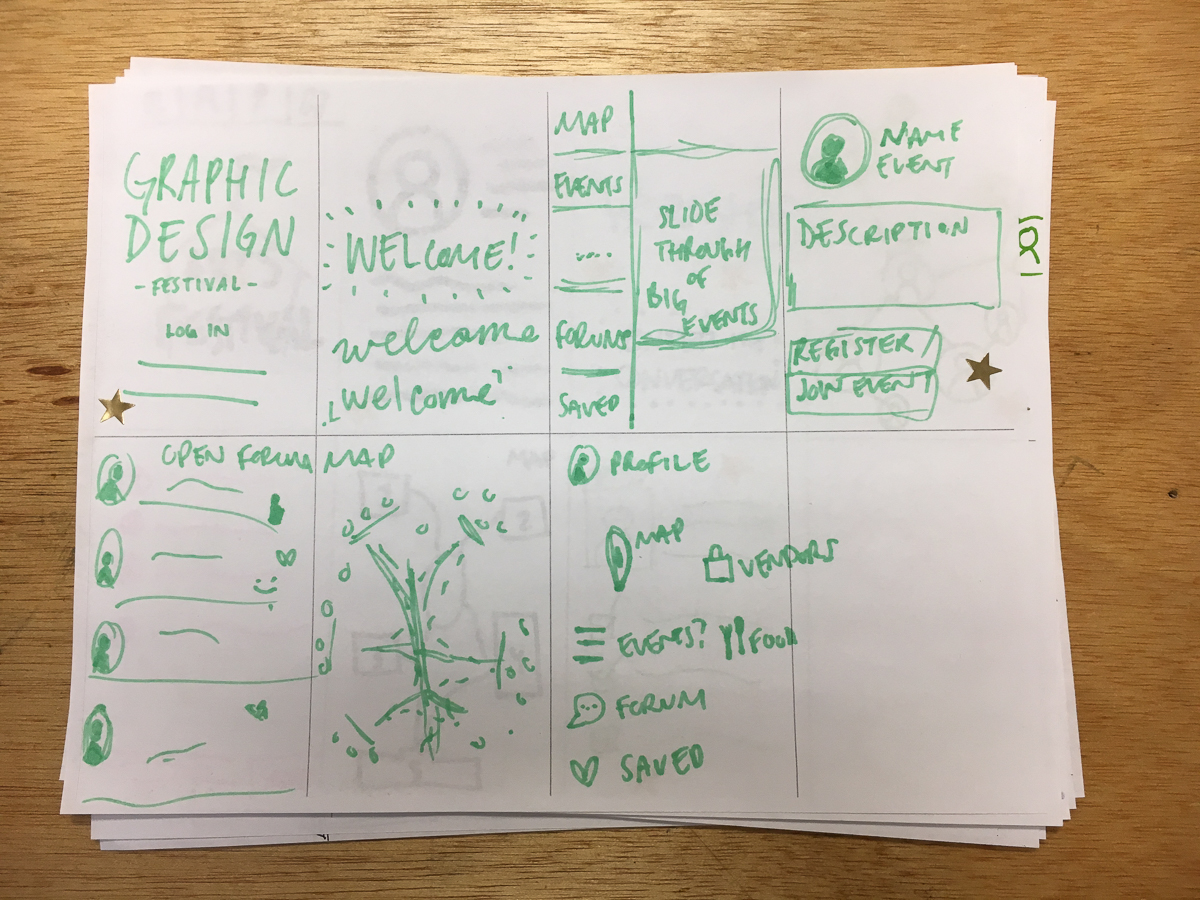 GRAPHIC
DESIGN
- FESTIVAL -
LOG IN
WELCOME!
welcome
welcome
MAP
EVENTS
....
FORUMS
SAVED
SLIDE
THROUGH
OF
BIG
EVENTS
NAME
EVENT
DESCRIPTION
REGISTER /
JOIN EVENT
OPEN FORUM
MAP
PROFILE
MAP
VENDORS
EVENTS?
FOOD
FORUM
SAVED